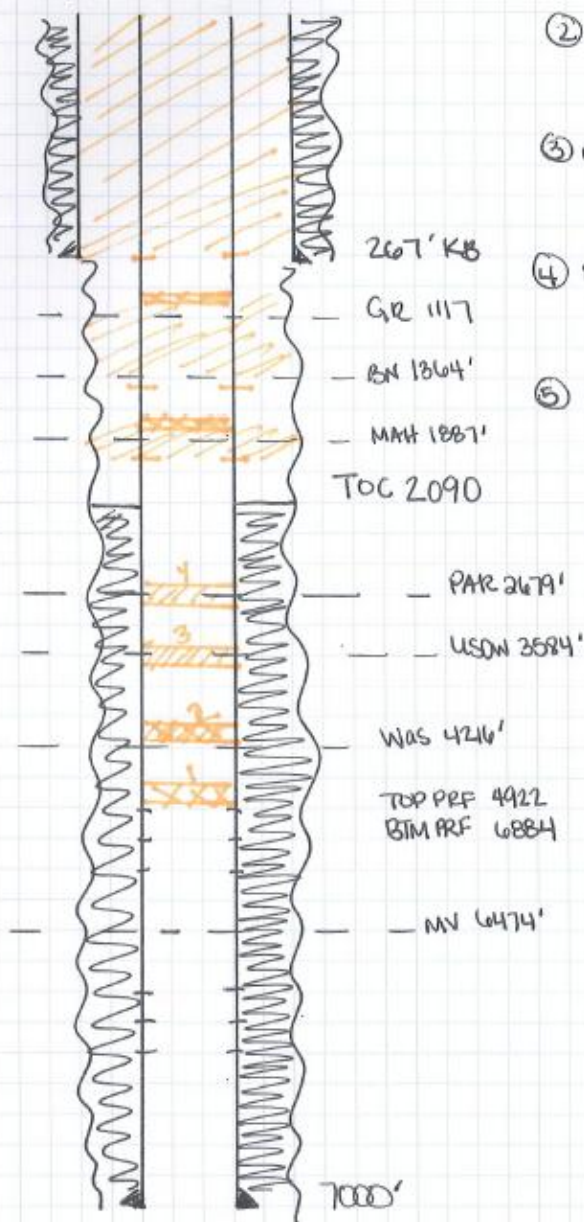 ②
③
267' KB
④
GR 1117
BN 1364'
⑤
MAH 1887'
TOC 2090
4
PAR 2679'
3
USDW 3584'
2
Was 4246'
1
TOP PRF 4922
BTM PRF 6884
MV 6474'
7000'